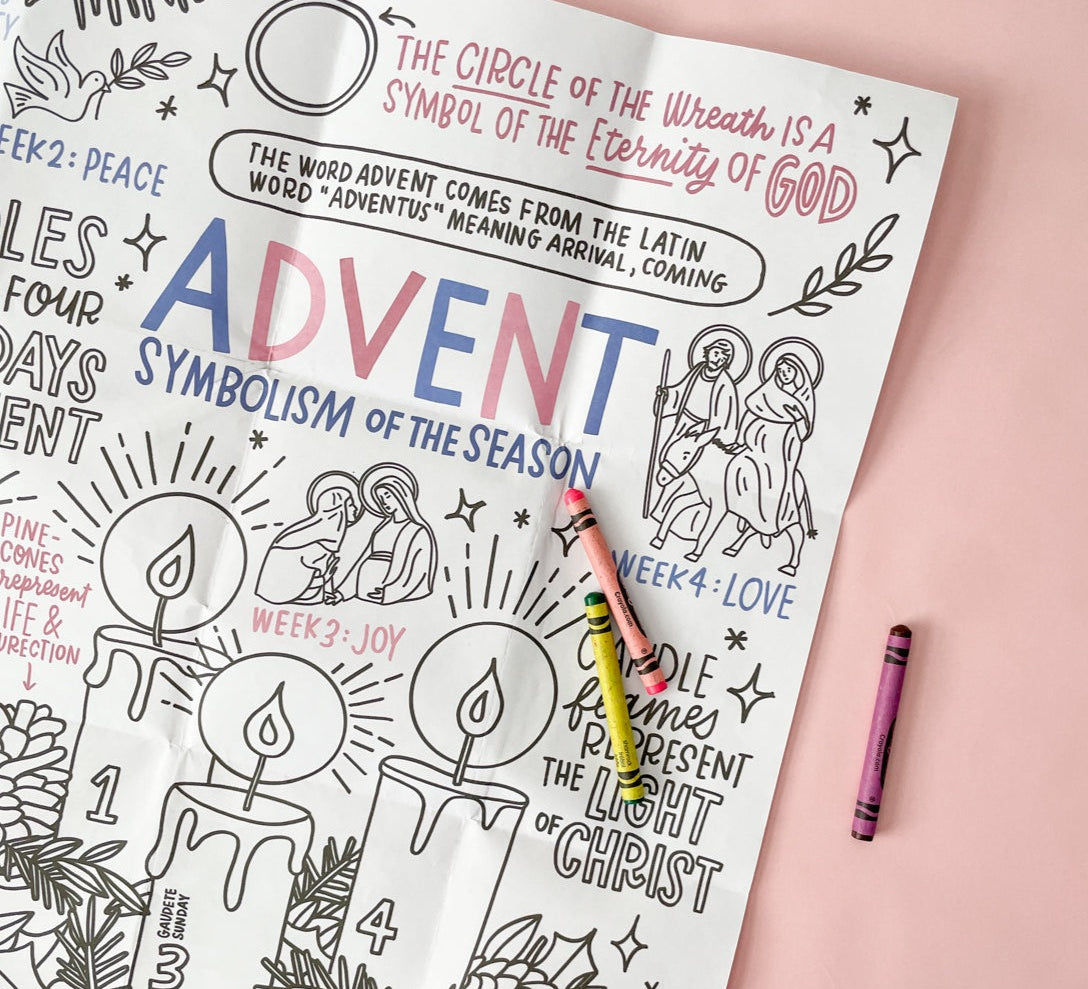 THE CIRCLE OF THE Wreath IS A
SYMBOL OF THE Eternity OF GOD
WEEK2: PEACE
THE WORD ADVENT COMES FROM THE LATIN
WORD "ADVENTUS" MEANING ARRIVAL, COMING
ADVENT
SYMBOLISM OF THE SEASON
FOUR
WEEK4: LOVE
WEEK3: JOY
PINE-
CONES
represent
LIFE &
CANDLE
flames
REPRESENT
THE LIGHT
OF CHRIST
1
4
GAUDETE
SUNDAY
3
Crayola.com
Crayola.com